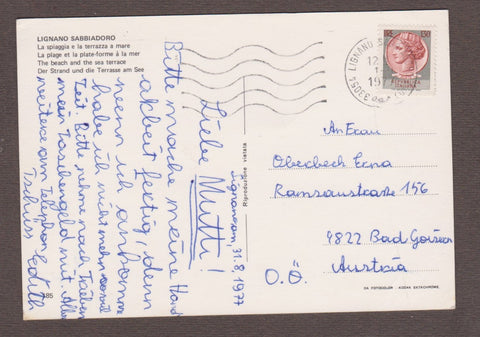 LIGNANO SABBIADORO
La spiaggia e la terrazza a mare
La plage et la plate-forme à la mer
The beach and the sea terrace
Der Strand und die Terrasse am See
Lignano am, 31.8.1977
Liebe Mutti!
Bitte mache meine Hand
arbeit fertig, denn
wenn ich ankomme
habe ich nicht mehr soviel
Zeit. Bitte nehme nach
mein Taschengeld mit. Alles
weitere am Telephon
Tschüss Edith
Riproduzione vietata
33054 LIGNANO
12
197
150
ITALIANA
An Frau
Oberbech Erna
Ramsaustraße 156
4822 Bad Goisern
O.Ö.
Austria
DA FOTOCOLOR KODAK EKTACHROME